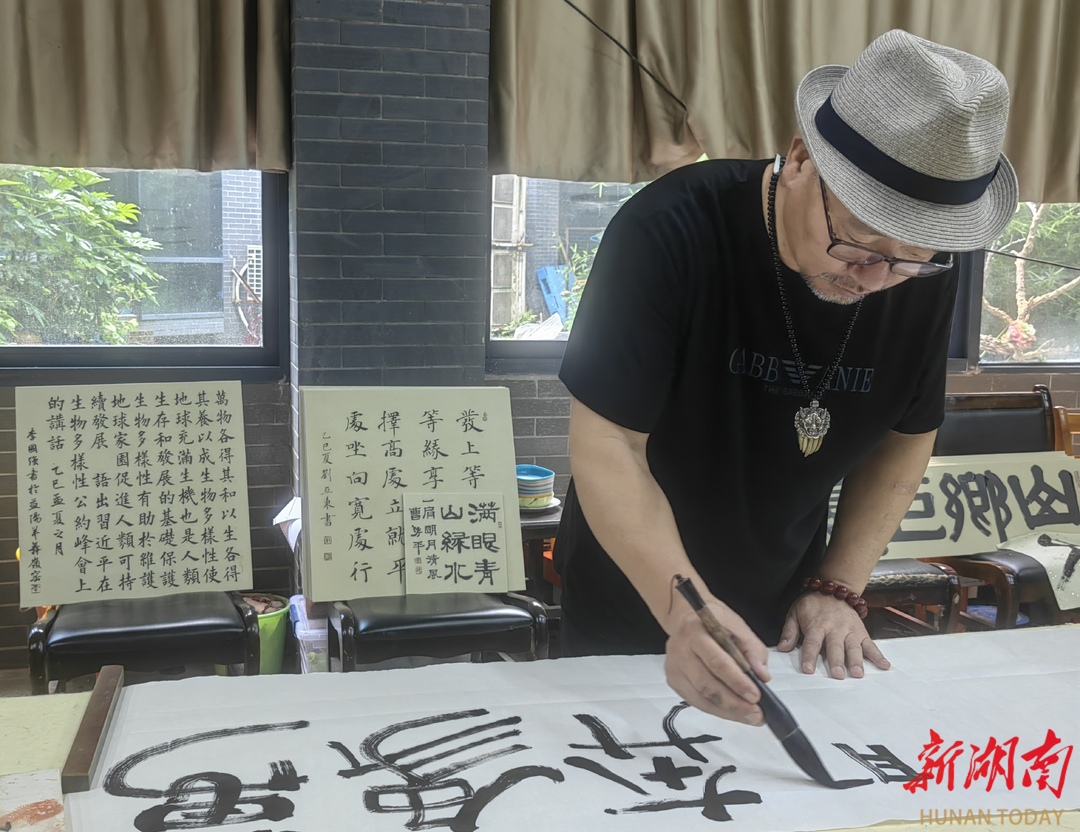 萬物各得其和以生各得
其養以成生物多樣性使
地球充滿生機也是人類
生存和發展的基礎保護
生物多樣性有助於維護
地球家園促進人類可持
續發展 語出習近平在
生物多樣性公約峰會上
的講話 乙巳孟夏之月
李國強書於益陽羊舞嶺窑
發上等
等緣享
擇高處立就平
處坐向寬處行
乙巳夏劉
書
滿眼青
山綠水
一扇明月清風
山鄉巨
GABB NIE
新湖南
HUNAN TODAY